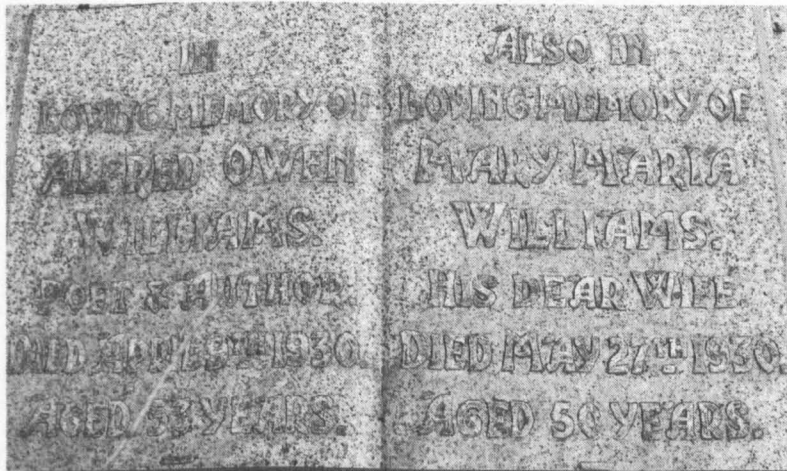 IN
LOVING MEMORY OF
ALFRED OWEN
WILLIAMS.
POET & AUTHOR.
DIED 1930.
AGED 53 YEARS.
ALSO IN
LOVING MEMORY OF
MARY MARIA
WILLIAMS.
HIS DEAR WIFE.
DIED MAY 27TH 1930.
AGED YEARS.